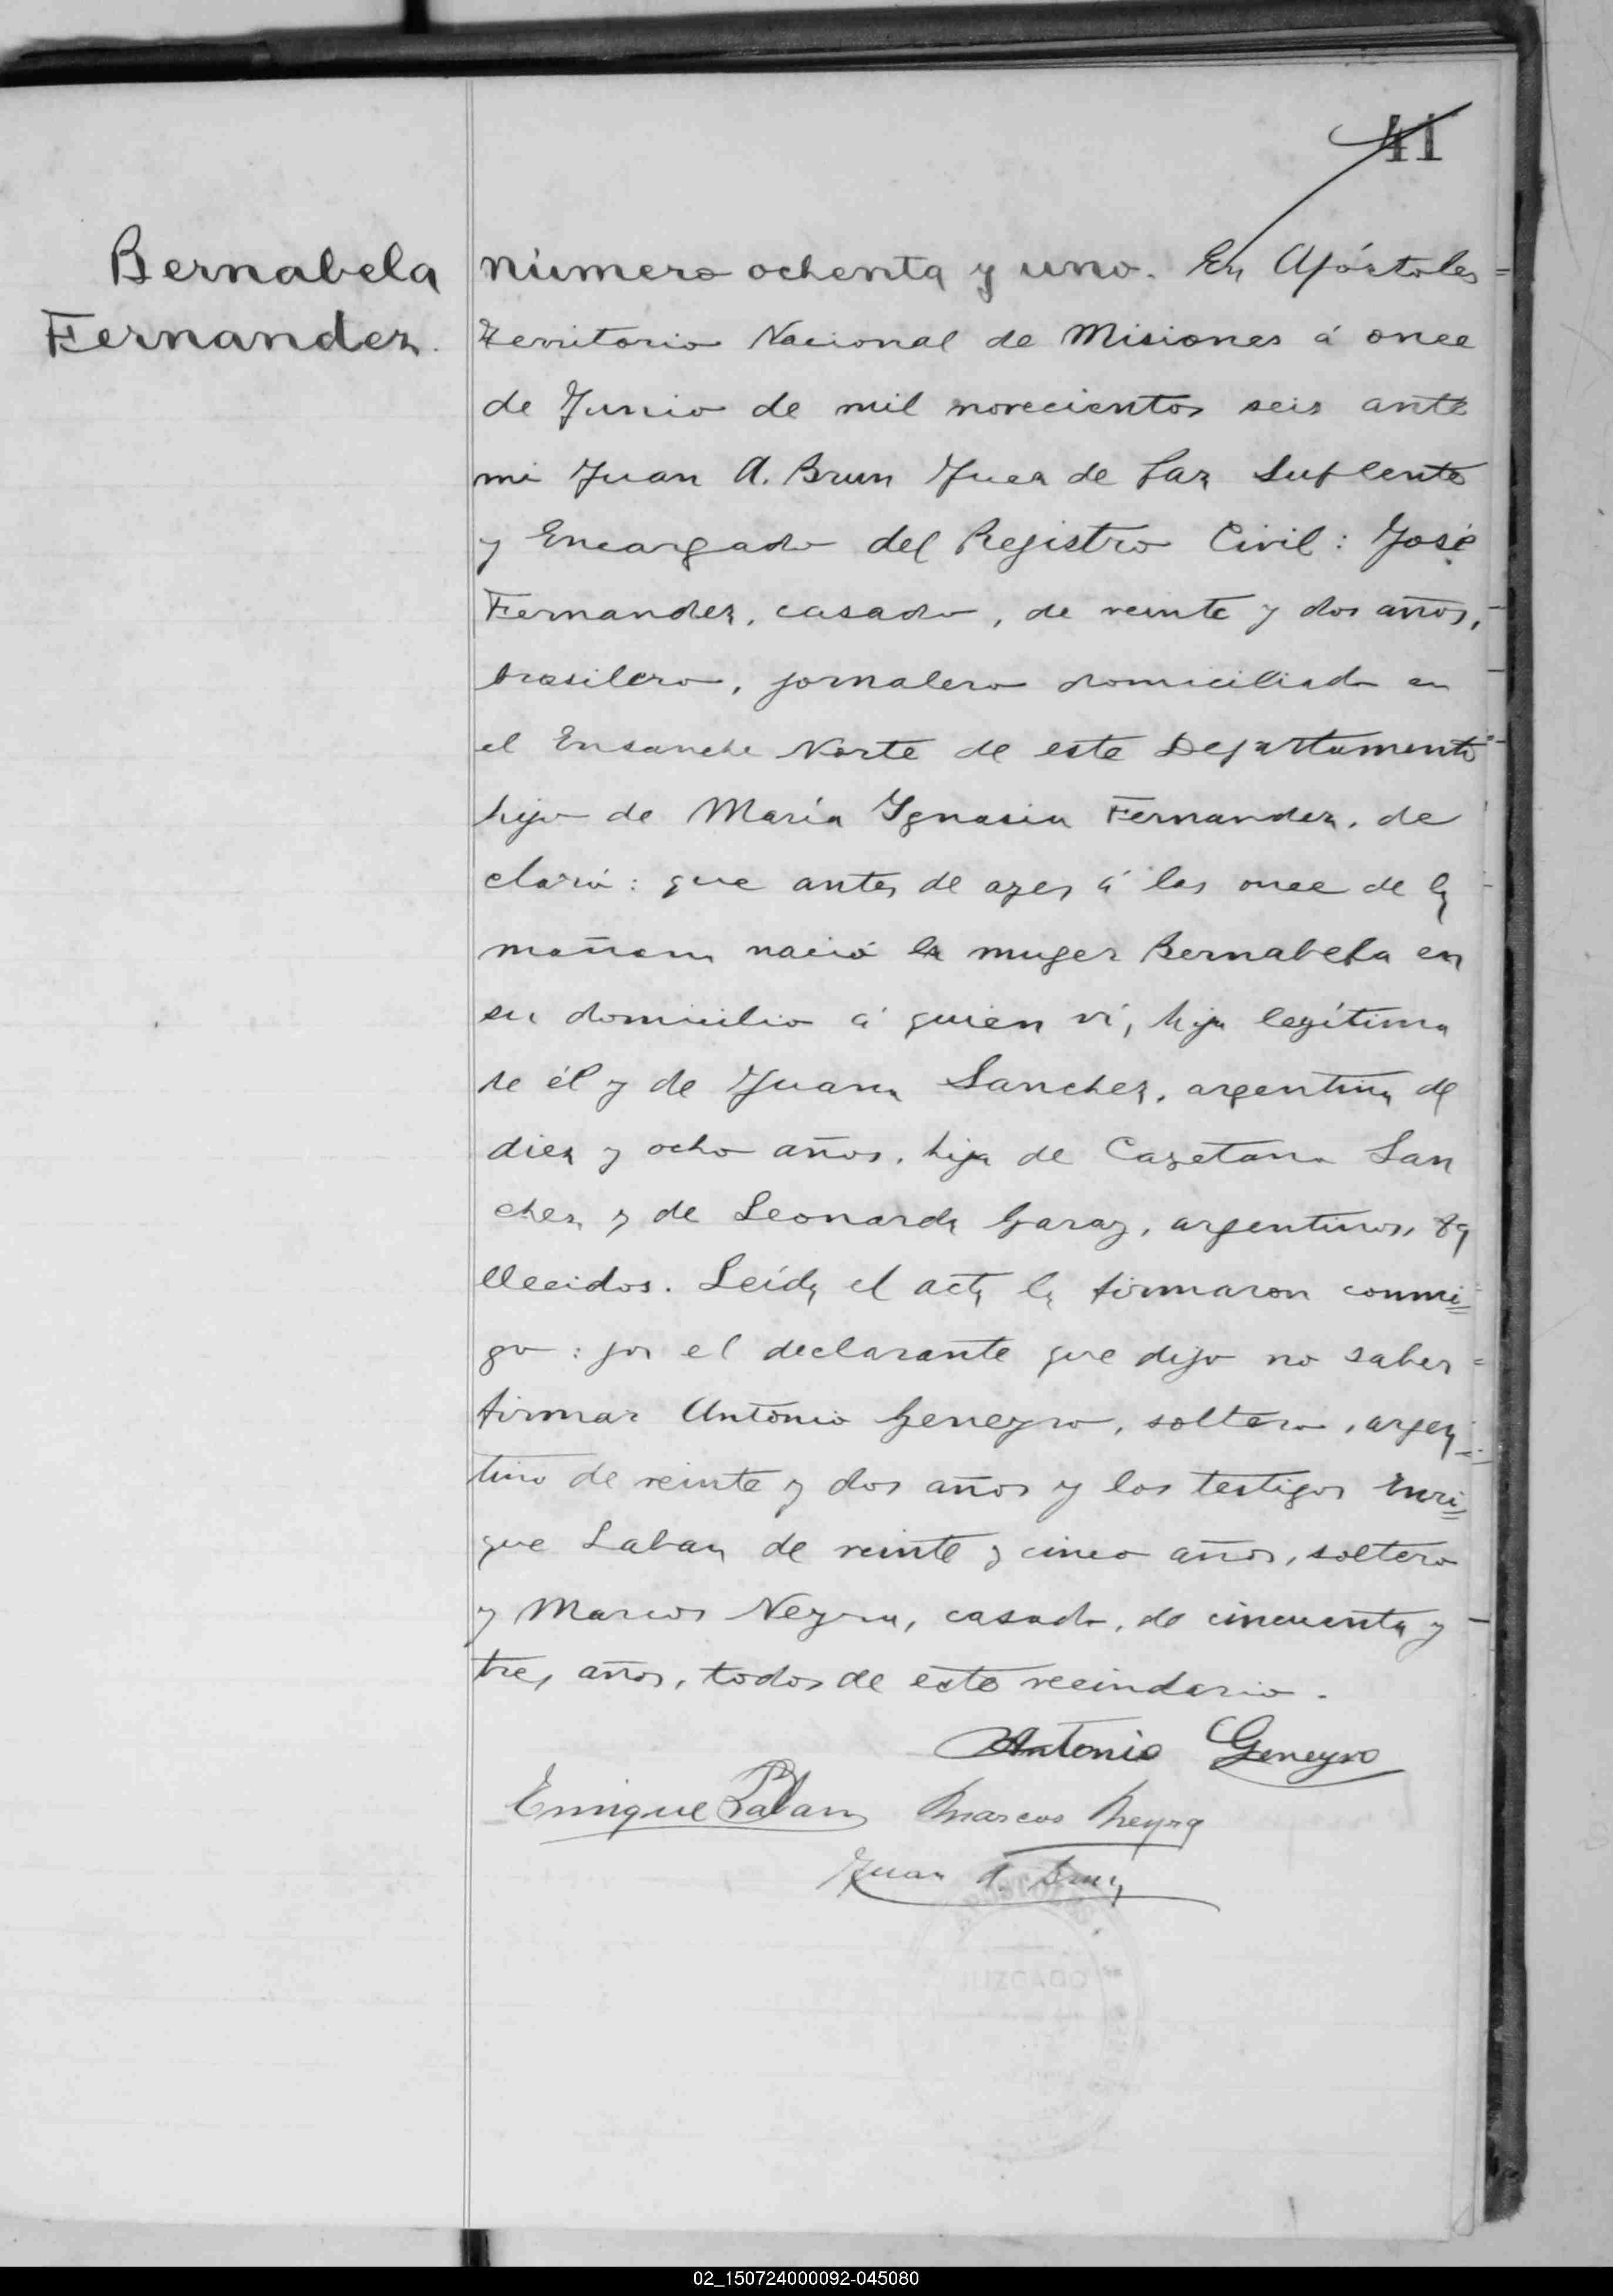 41
Bernabela
Fernandez.
Número ochenta y uno. En Apóstoles
Territorio Nacional de Misiones á once
de Junio de mil novecientos seis ante
mi Juan A. Brun Juez de Paz Suplente
y Encargado del Registro Civil: José
Fernandez, casado, de veinte y dos años,
brasilero, jornalero domiciliado en
el Ensanche Norte de este Departamento
hijo de María Ignasia Fernandez, de
claró: que antes de ayer á las once de la
mañana nació la muger Bernabela en
su domicilio á quien ví, hija legítima
de él y de Juana Sanchez, argentina de
diez y ocho años, hija de Cayetano San
chez y de Leonarda Garay, argentinos, fa
llecidos. Leída el acta la firmaron conmi=
go: por el declarante que dijo no saber
firmar Antonio Geneyro, soltero, argen=
tino de veinte y dos años y los testigos Enri=
que Laban de veinte y cinco años, soltero
y Marcos Neyra, casado, de cincuenta y
tres años, todos de este vecindario.
Antonio Geneyro
Enrique Laban Marcos Neyra
Juan A. Brun
JUZGADO
02_150724000092-045080